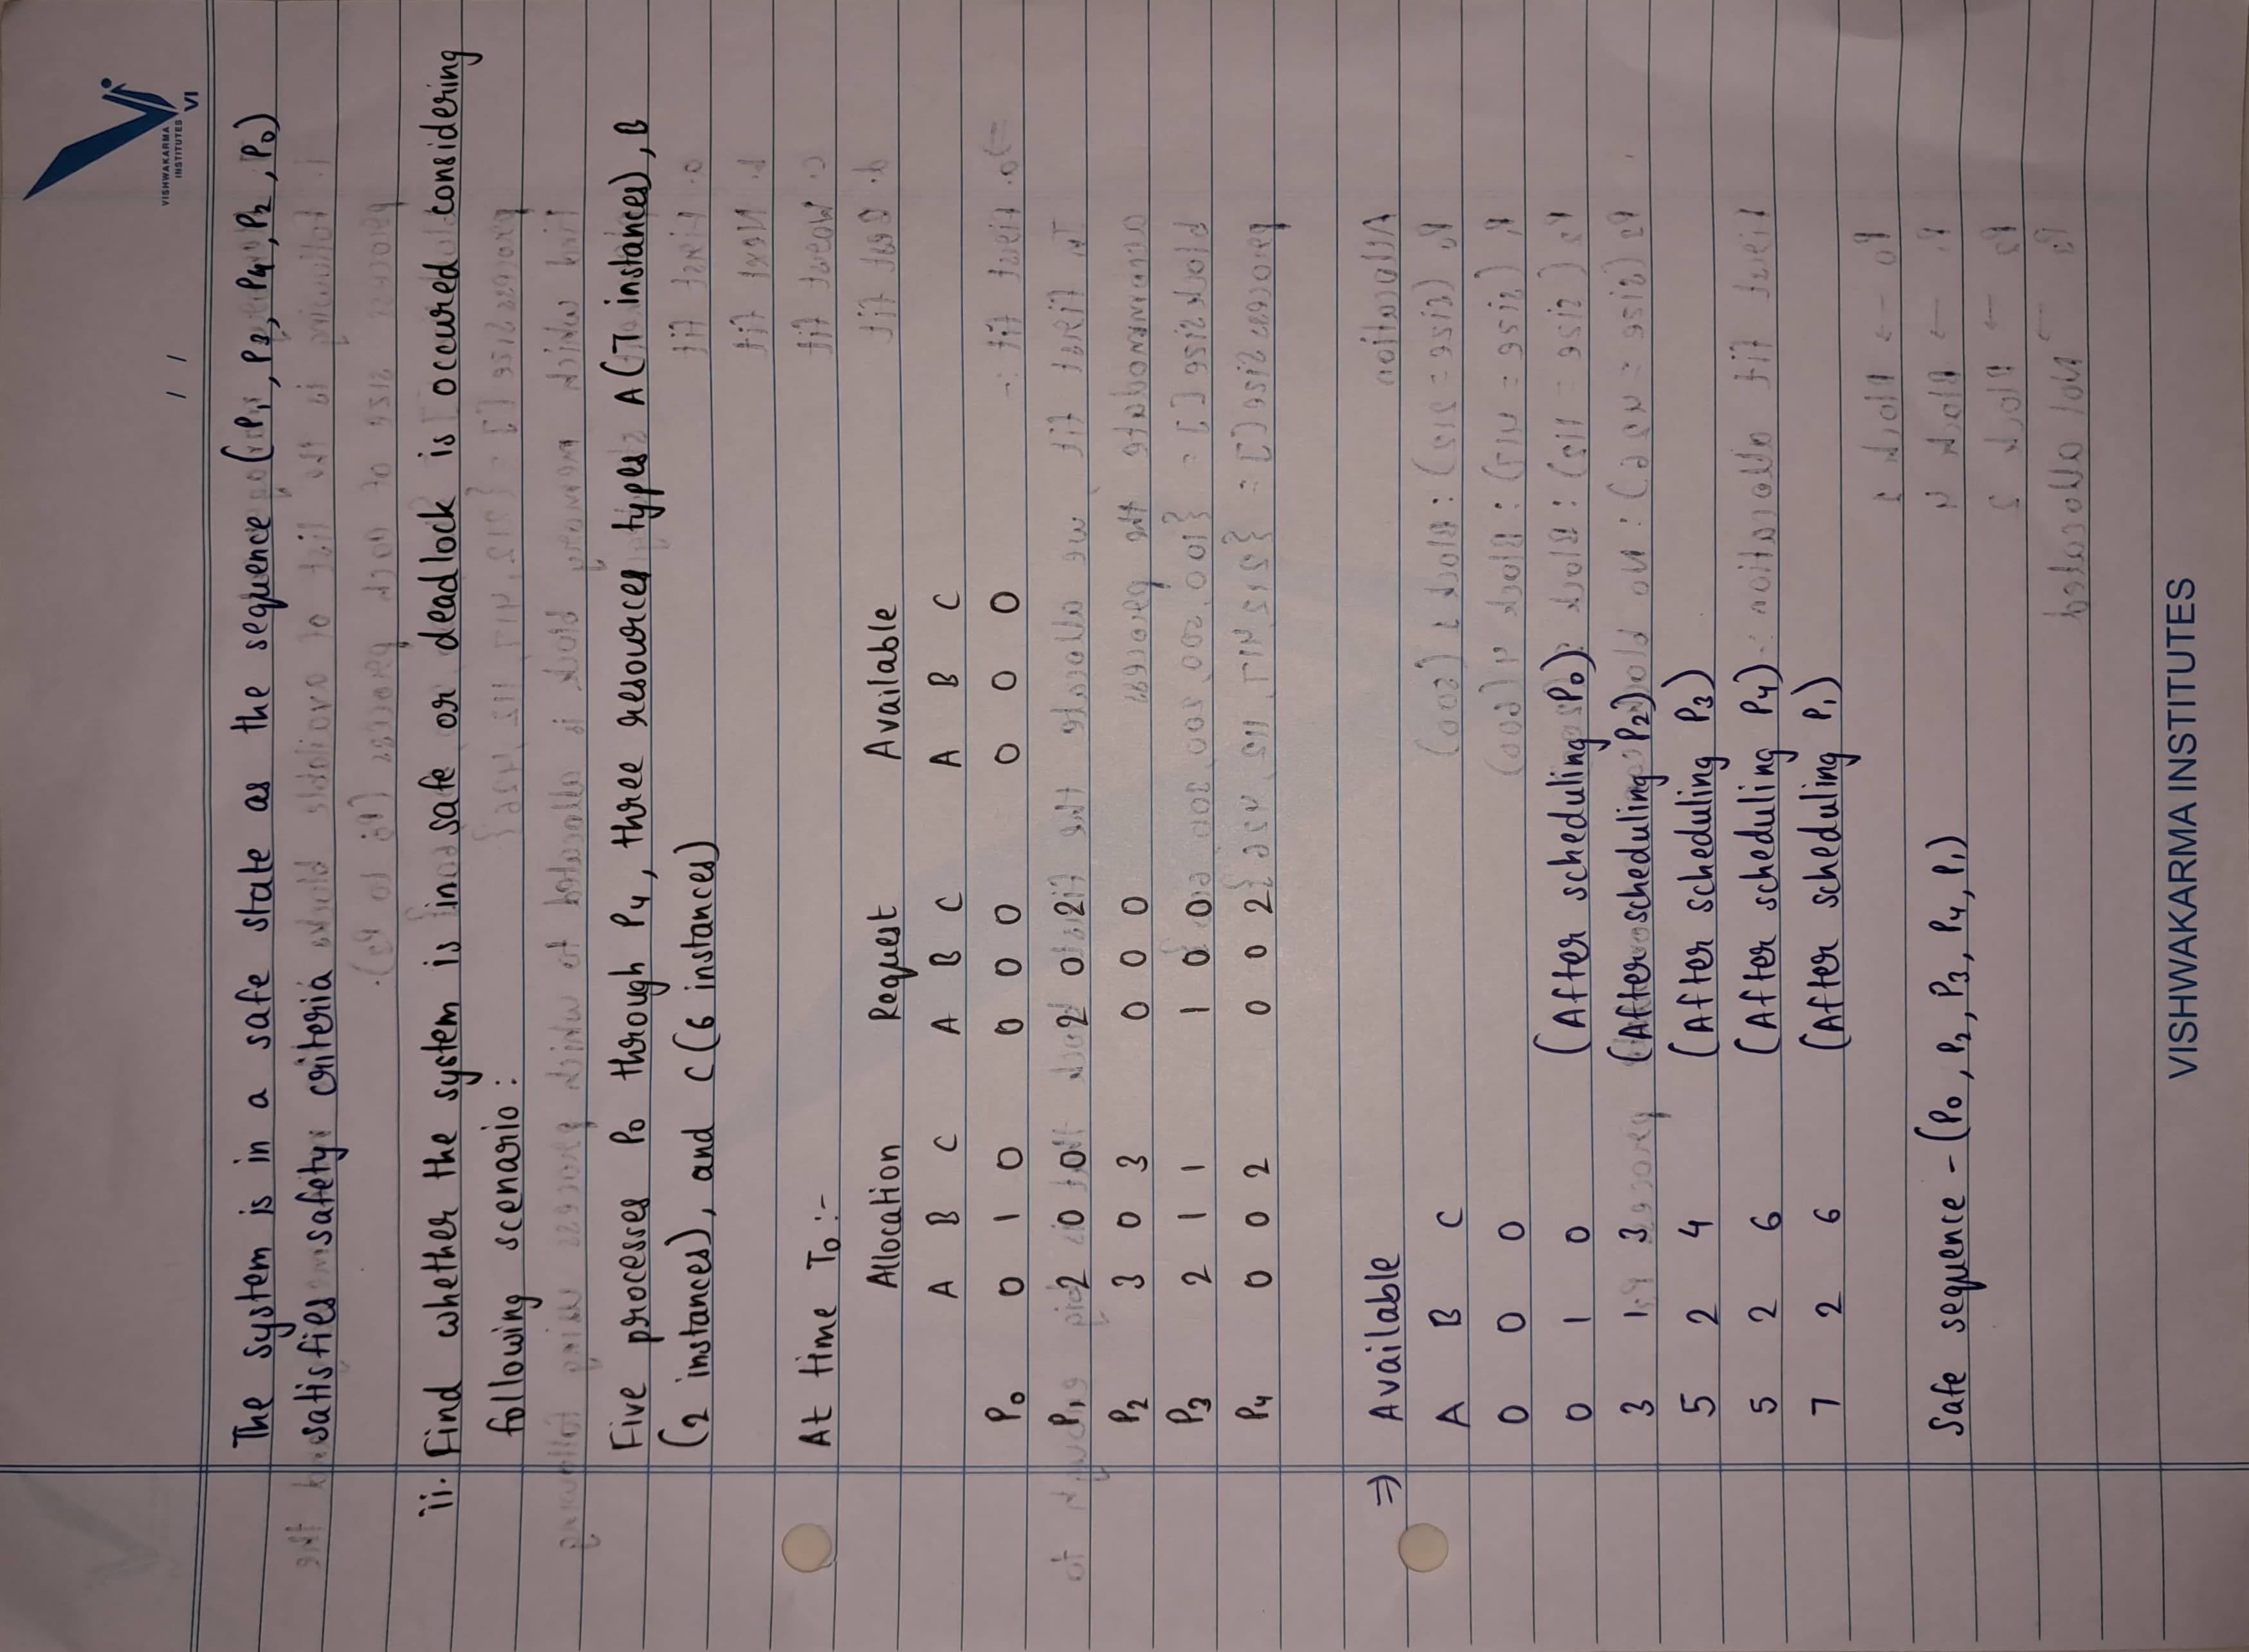 VISHWAKARMA
INSTITUTES
VI
/ /
The system is in a safe state as the sequence (P1, P3, P4, P2, P0)
satisfies safety criteria
ii. Find whether the system is in safe or deadlock is occured considering
following scenario :
Five processes P0 through P4, three resources types A(7 instances), B
(2 instances), and C(6 instances)
At time T0 :-
Allocation Request Available
A B C A B C A B C
P0 0 1 0 0 0 0 0 0 0
P1 2 0 0 2 0 2
P2 3 0 3 0 0 0
P3 2 1 1 1 0 0
P4 0 0 2 0 0 2
⇒ Available
A B C
0 0 0
0 1 0 (After scheduling P0)
3 1 3 (After scheduling P2)
5 2 4 (After scheduling P3)
5 2 6 (After scheduling P4)
7 2 6 (After scheduling P1)
Safe sequence - (P0, P2, P3, P4, P1)
VISHWAKARMA INSTITUTES